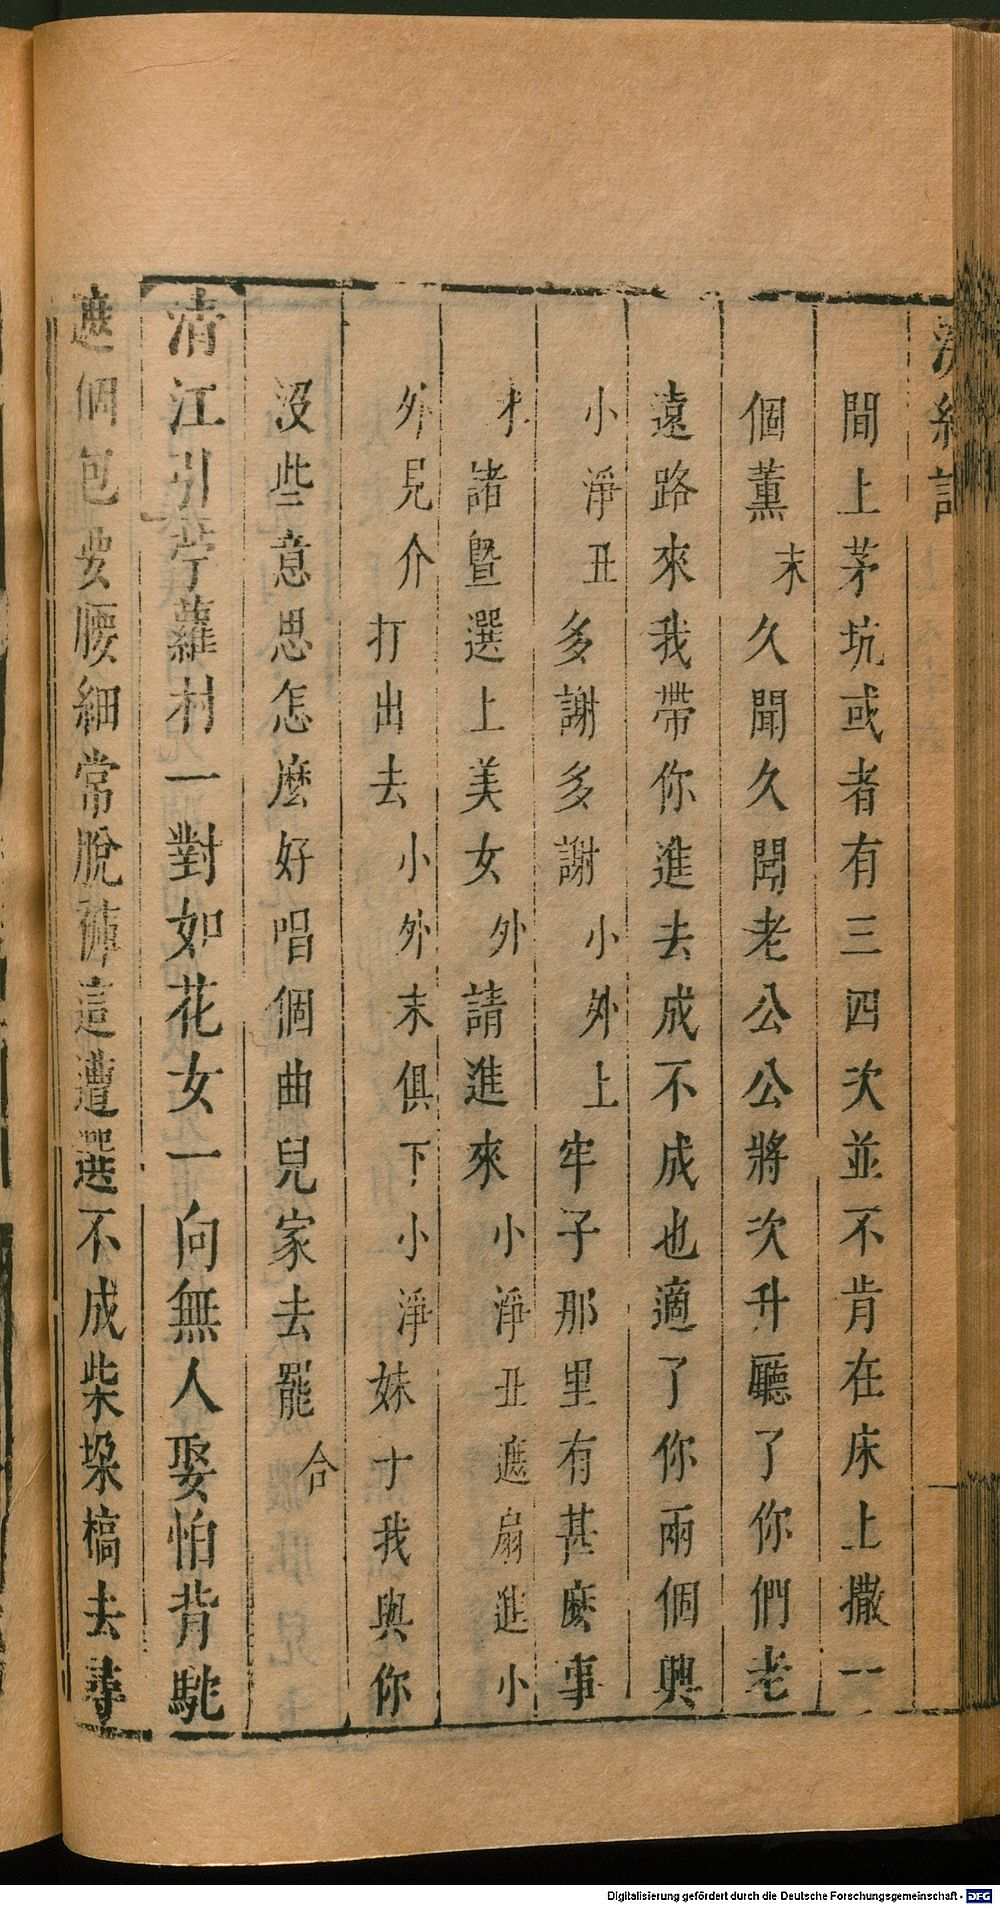 浣紗記
間上茅坑或者有三四次並不肯在床上撒一
個薰末久聞久聞老公公將次升廳了你們老
遠路來我帶你進去成不成也適了你兩個興
小淨丑多謝多謝小外上牢子那里有甚麽事
末諸暨選上美女外請進來小淨丑遮扇進小
外見介打出去小外末俱下小淨妹子我與你
沒些意思怎麽好唱個曲兒家去罷合
清江引苧蘿村一對如花女一向無人娶怕背駝
遮個包要腰細常脫褲這遭選不成柴垜槁去尋
Digitalisierung gefördert durch die Deutsche Forschungsgemeinschaft - DFG